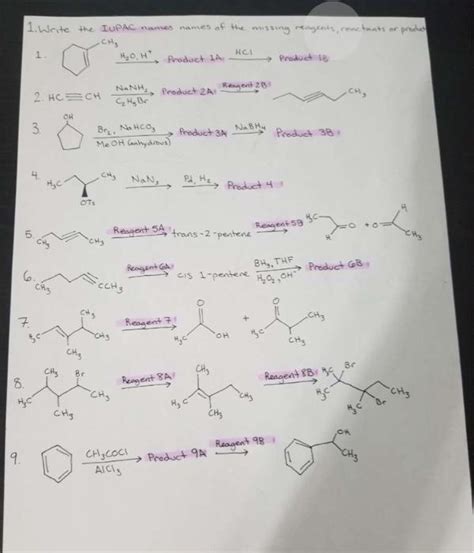 1. Write the IUPAC names names of the missing reagents, reactants or product
1. CH3 H2O, H+ Product 1A HCl Product 1B
2. HC≡CH NaNH2 C2H5Br Product 2A Reagent 2B CH3
3. OH Br2, NaHCO3 MeOH (anhydrous) Product 3A NaBH4 Product 3B
4. H3C CH3 OTs NaN3 Pd, H2 Product 4
5. CH3 CH3 Reagent 5A trans-2-pentene Reagent 5B H3C H O + O H CH3
6. CH3 CCH3 Reagent 6A cis 1-pentene BH3, THF H2O2, OH- Product 6B
7. H3C CH3 CH3 CH3 Reagent 7 H3C O OH + O H3C CH3 CH3
8. CH3 Br H3C CH3 CH3 Reagent 8A CH3 H3C CH3 CH3 Reagent 8B H3C Br H3C H3C Br CH3
9. CH3COCl AlCl3 Product 9A Reagent 9B OH CH3